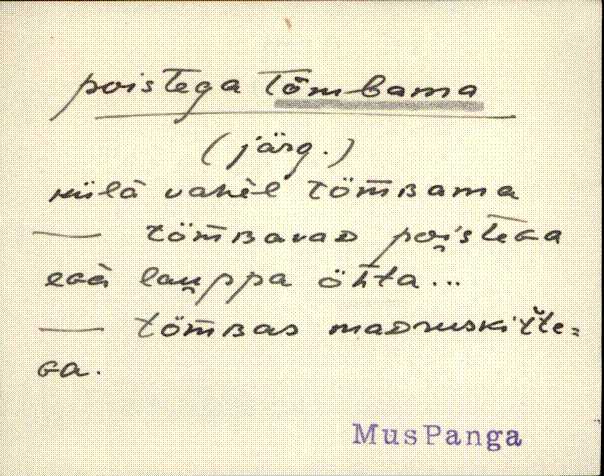 poistega tõmbama
(järg.)
külä vahèl töm̄ʙama
— töm̄ʙavaᴅ poi̯steɢa
eɢà̀ lau̯ppa öhta...
— töm̄ʙas maᴅruskit̆te-
ɢa.
MusPanga